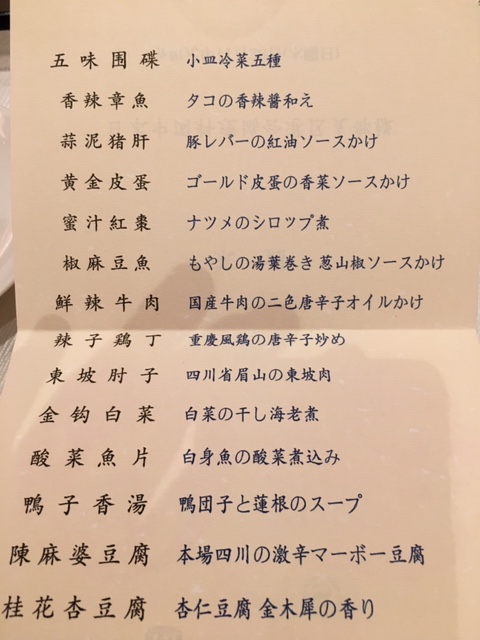 五味围碟 小皿冷菜五種
香辣章魚 タコの香辣醤和え
蒜泥猪肝 豚レバーの紅油ソースかけ
黄金皮蛋 ゴールド皮蛋の香菜ソースかけ
蜜汁紅棗 ナツメのシロップ煮
椒麻豆魚 もやしの湯葉巻き 葱山椒ソースかけ
鮮辣牛肉 国産牛肉の二色唐辛子オイルかけ
辣子鶏丁 重慶風鶏の唐辛子炒め
東坡肘子 四川省眉山の東坡肉
金钩白菜 白菜の干し海老煮
酸菜魚片 白身魚の酸菜煮込み
鴨子香湯 鴨団子と蓮根のスープ
陳麻婆豆腐 本場四川の激辛マーボー豆腐
桂花杏豆腐 杏仁豆腐 金木犀の香り